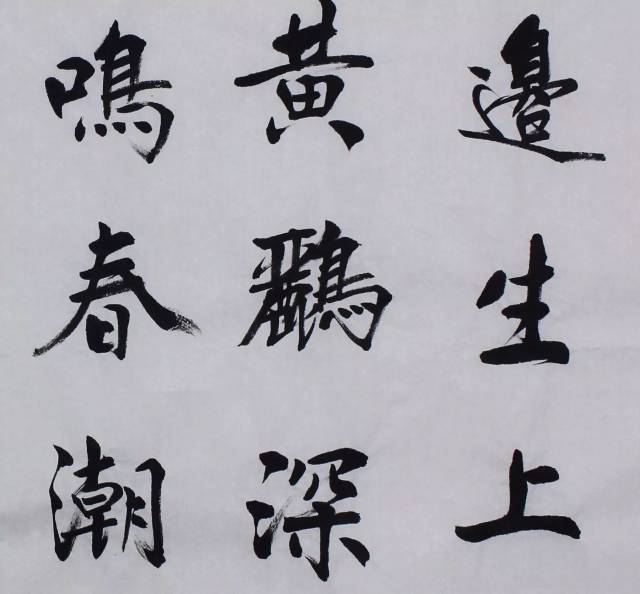 邊生上
黃鸝深
鳴春潮